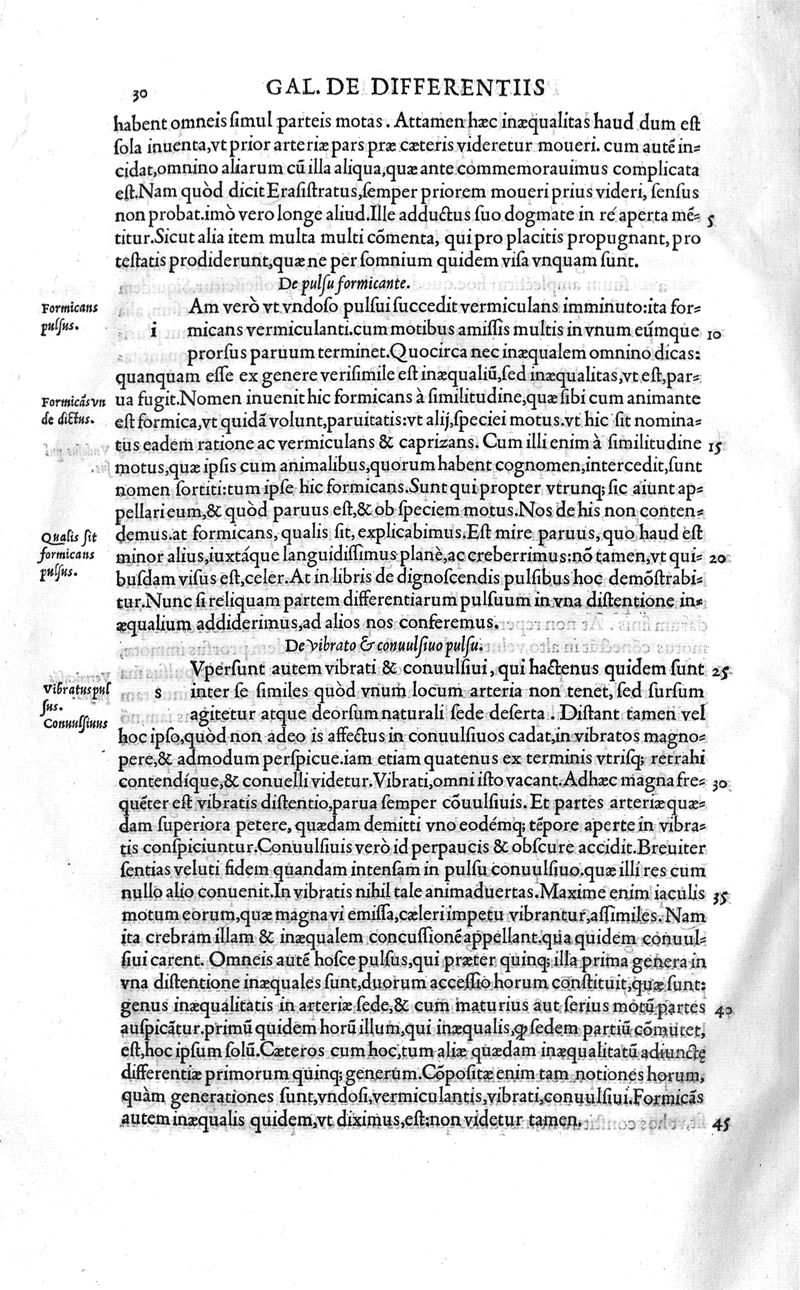 30 GAL. DE DIFFERENTIIS
habent omneis ſimul parteis motas. Attamen hæc inæqualitas haud dum eſt
ſola inuenta, vt prior arteriæ pars præ cæteris videretur moueri. cum auté in-
cidat, omnino aliarum cũ illa aliqua, quæ ante commemorauimus complicata
eſt. Nam quòd dicit Eraſiſtratus, ſemper priorem moueri prius videri, ſenſus
non probat. imò vero longe aliud. Ille adductus ſuo dogmate in re aperta mē- 5
titur. Sicut alia item multa multi cōmenta, qui pro placitis propugnant, pro
teſtatis prodiderunt, quæ ne per ſomnium quidem viſa vnquam ſunt.
De pulſu formicante.
Formicans pulſus.
i Am verò vt vndoſo pulſui ſuccedit vermiculans imminuto: ita for-
micans vermiculanti. cum motibus amiſſis multis in vnum eúmque 10
prorſus paruum terminet. Quocirca nec inæqualem omnino dicas:
quanquam eſſe ex genere veriſimile eſt inæqualiũ, ſed inæqualitas, vt eſt, par-
Formicãs vn
de dictus.
ua fugit. Nomen inuenit hic formicans à ſimilitudine, quæ ſibi cum animante
eſt formica, vt quidã volunt, paruitatis: vt alij, ſpeciei motus. vt hic ſit nomina-
tus eadem ratione ac vermiculans & caprizans. Cum illi enim à ſimilitudine 15
motus, quæ ipſis cum animalibus, quorum habent cognomen, intercedit, ſunt
nomen ſortiti: tum ipſe hic formicans. Sunt qui propter vtrunq; ſic aiunt ap-
pellari eum, & quòd paruus eſt, & ob ſpeciem motus. Nos de his non conten-
Qualis ſit
formicans
pulſus.
demus. at formicans, qualis ſit, explicabimus. Eſt mire paruus, quo haud eſt
minor alius, iuxtáque languidiſſimus planè, ac creberrimus: nō tamen, vt qui- 20
buſdam viſus eſt, celer. At in libris de dignoſcendis pulſibus hoc demōſtrabi-
tur. Nunc ſi reliquam partem differentiarum pulſuum in vna diſtentione in-
æqualium addiderimus, ad alios nos conferemus.
De vibrato & conuulſiuo pulſu.
s Vperſunt autem vibrati & conuulſiui, qui hactenus quidem ſunt 25
Vibratus pul
ſus.
Conuulſiuus
inter ſe ſimiles quòd vnum locum arteria non tenet, ſed ſurſum
agitetur atque deorſum naturali ſede deſerta. Diſtant tamen vel
hoc ipſo, quòd non adeo is affectus in conuulſiuos cadat, in vibratos magno-
pere, & admodum perſpicue. iam etiam quatenus ex terminis vtriſq; retrahi
contendíque, & conuelli videtur. Vibrati, omni iſto vacant. Adhæc magna fre- 30
quēter eſt vibratis diſtentio, parua ſemper cōuulſiuis. Et partes arteriæ quæ-
dam ſuperiora petere, quædam demitti vno eodémq; tēpore aperte in vibra-
tis conſpiciuntur. Conuulſiuis verò id perpaucis & obſcure accidit. Breuiter
ſentias veluti fidem quandam intenſam in pulſu conuulſiuo. quæ illi res cum
nullo alio conuenit. In vibratis nihil tale animaduertas. Maxime enim iaculis 35
motum eorum, quæ magna vi emiſſa, cæleri impetu vibrantur, aſſimiles. Nam
ita crebram illam & inæqualem concuſſionē appellant. qua quidem conuul-
ſiui carent. Omneis autē hoſce pulſus, qui præter quinq; illa prima genera in
vna diſtentione inæquales ſunt, duorum acceſſio horum conſtituit, quæ ſunt:
genus inæqualitatis in arteriæ ſede, & cum maturius aut ſerius motũ partes 40
auſpicãtur. primũ quidem horũ illum, qui inæqualis, ꝙ ſedem partiũ cōmutet,
eſt, hoc ipſum ſolũ. Cæteros cum hoc, tum aliæ quædam inæqualitatũ adiunctę
differentiæ primorum quinq; generum. Cōpoſitæ enim tam notiones horum,
quàm generationes ſunt, vndoſi, vermiculantis, vibrati, conuulſiui. Formicãs
autem inæqualis quidem, vt diximus, eſt: non videtur tamen. 45